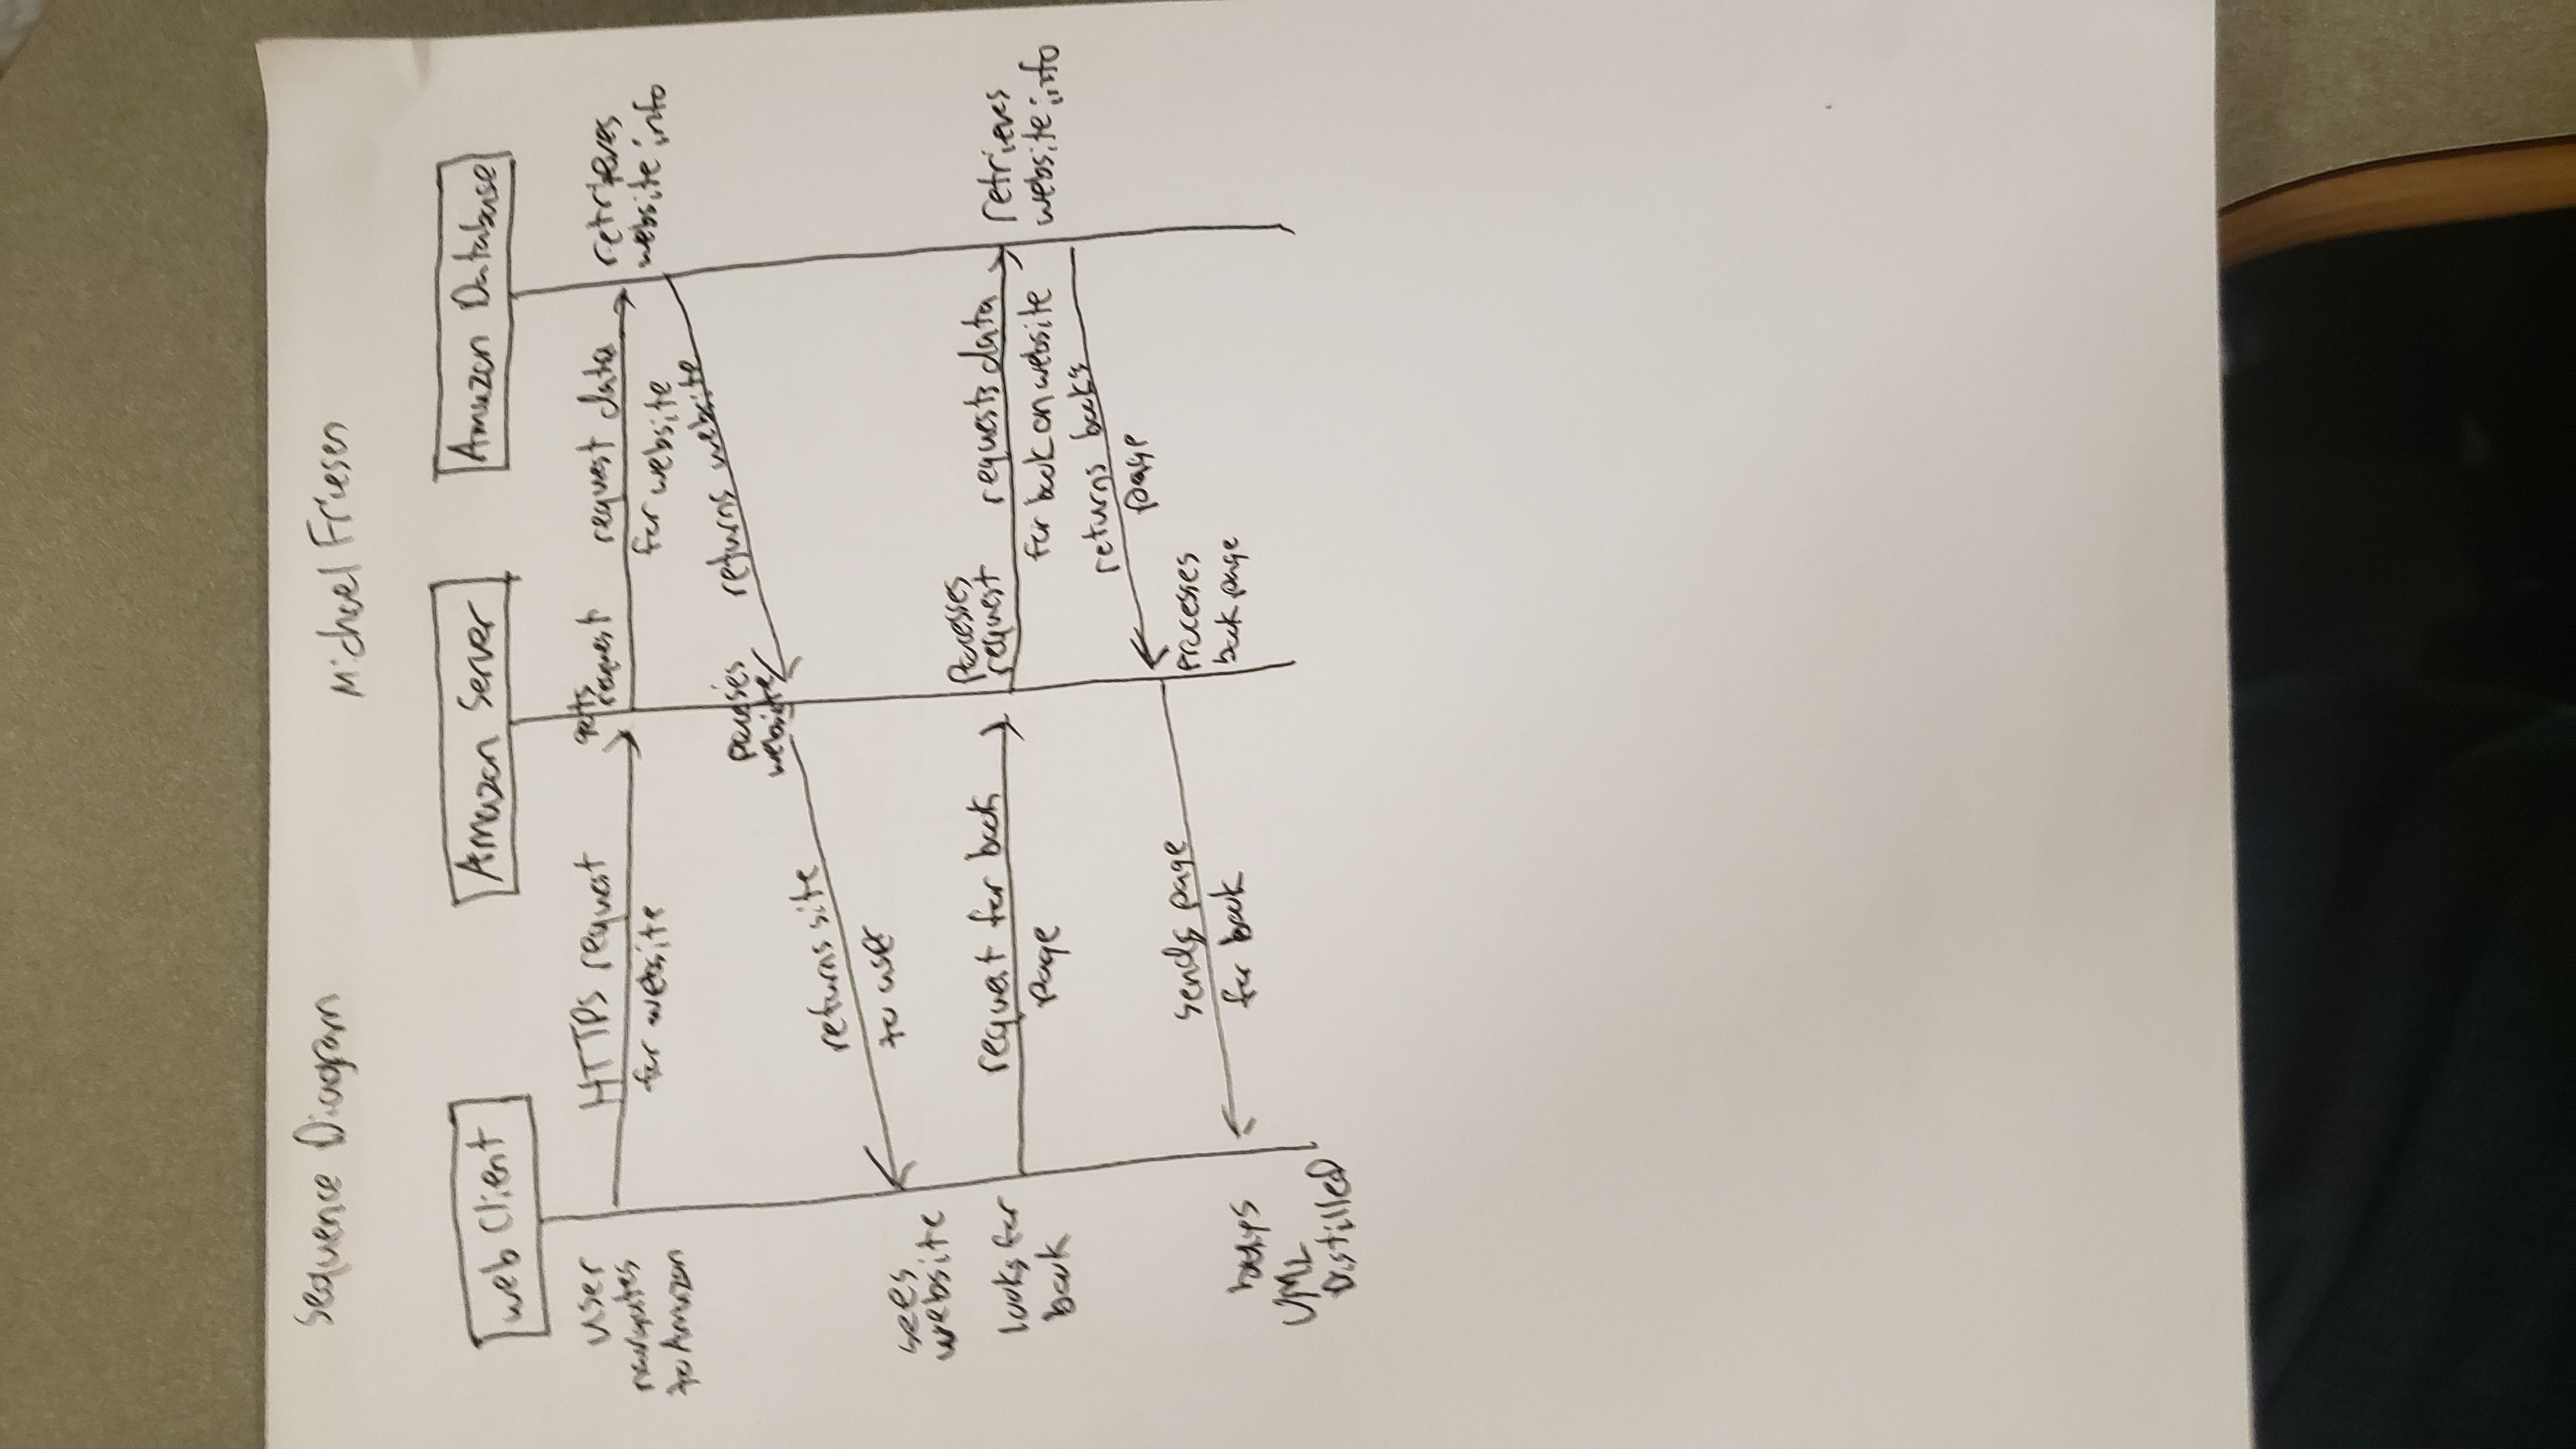 Sequence Diagram
Michael Friesen
web Client
Amazon Server
Amazon Database
User
navigates
to Amazon
HTTPs request
for website
gets
request
request data
for website
retrieves
website info
returns website
website
returns site
to user
sees
website
looks for
book
request for book
page
request
requests data
for book on website
retrieves
website info
returns book's
page
Processes
book page
sends page
for book
buys
UML
Distilled